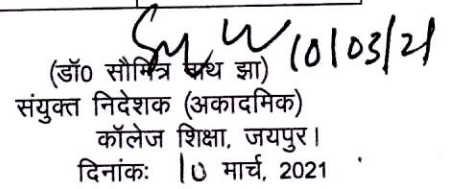 10/03/21
(डॉ0 सौमित्र नाथ झा)
संयुक्त निदेशक (अकादमिक)
कॉलेज शिक्षा, जयपुर।
दिनांकः 10 मार्च, 2021